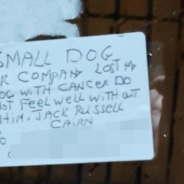 SMALL DOG
R COMPANY LOST MY
OG WITH CANCER DO
NOT FEEL WELL WITHOUT
HIM. JACK RUSSELL
CAIRN